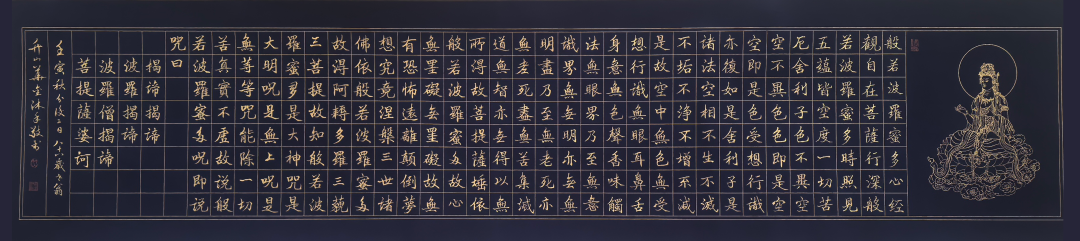 般若波羅蜜多心經
觀自在菩薩行深般
若波羅蜜多時照見
五蘊皆空度一切苦
厄舍利子色不異空
空不異色色即是空
空即是色受想行識
亦復如是舍利子是
諸法空相不生不滅
不垢不淨不增不減
是故空中無色無受
想行識無眼耳鼻舌
身意無色聲香味觸
法無眼界乃至無意
識界無無明亦無無
明盡乃至無老死亦
無老死盡無苦集滅
道無智亦無得以無
所得故菩提薩埵依
般若波羅蜜多故心
無罣礙無罣礙故無
有恐怖遠離顛倒夢
想究竟涅槃三世諸
佛依般若波羅蜜多
故得阿耨多羅三藐
三菩提故知般若波
羅蜜多是大神咒是
大明咒是無上咒是
無等等咒能除一切
苦真實不虛故說般
若波羅蜜多咒即說
咒曰
揭諦揭諦
波羅揭諦
波羅僧揭諦
菩提薩婆訶
壬寅秋分後二日
舟山沐手敬書